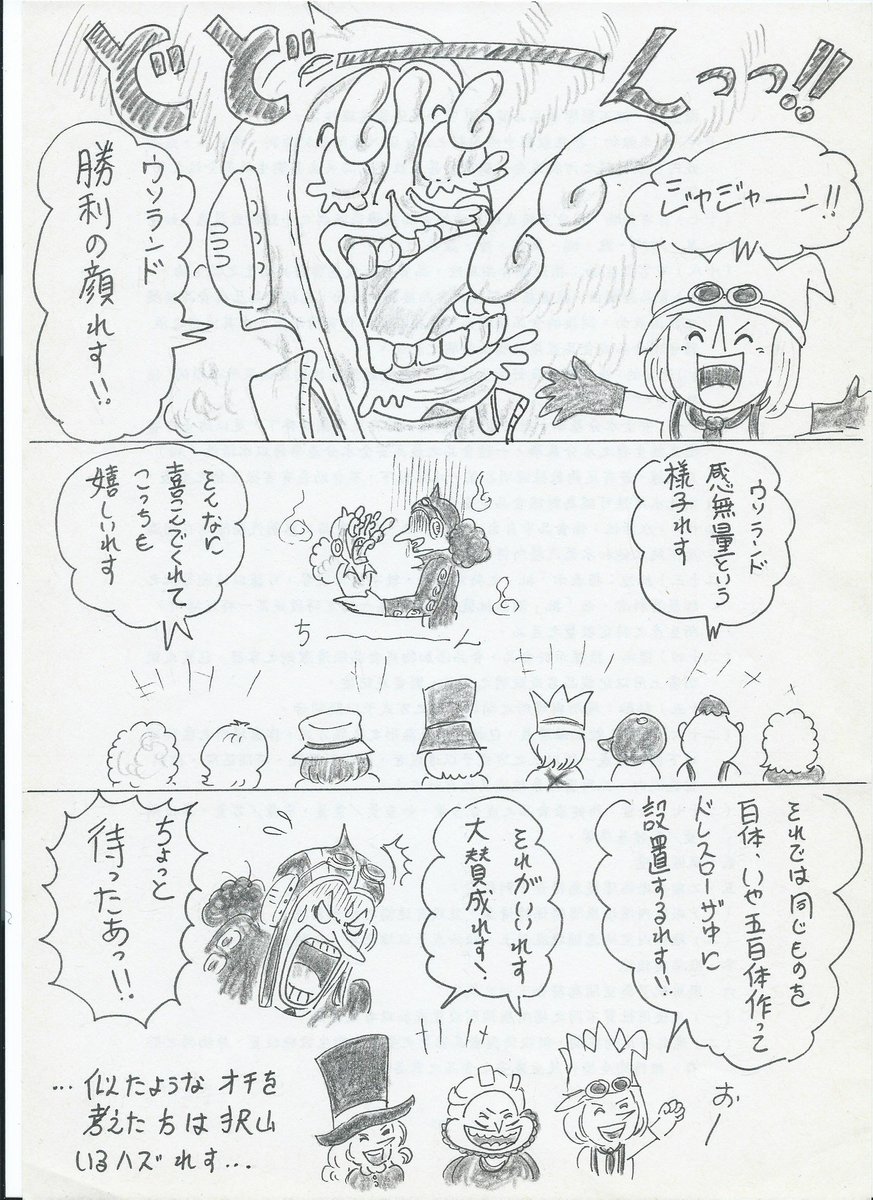 どどんっっ!!
ジャジャーン!!
ウソランド
勝利の顔れす!!
ウソランド
感無量という
様子れす
そんなに
喜こんでくれて
こっちも
嬉しいれす
ち
ーん
それでは同じものを
百体、いや五百体作って
ドレスローザ中に
設置するれす!!
それがいいれす
大賛成れす!
おー
ちょっと
待ったあっ!!
…似たようなオチを
考えた方は沢山
いるハズれす…